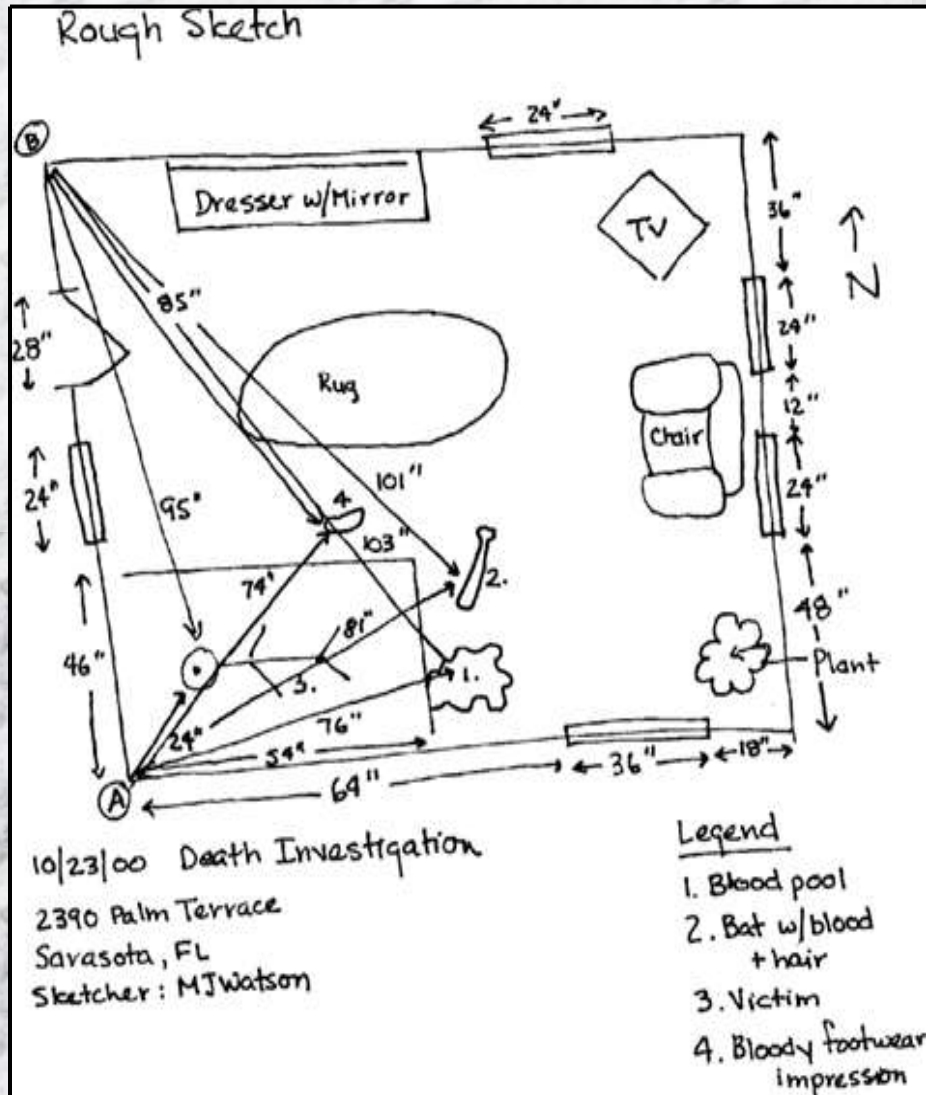 Rough Sketch
B
24"
Dresser w/Mirror
TV
36"
N
85"
28"
24"
Rug
12"
Chair
24"
24"
95"
101"
4.
103"
2.
74"
48"
81"
46"
Plant
3.
1.
24"
76"
54"
18"
36"
64"
A
10/23/00 Death Investigation
2390 Palm Terrace
Sarasota, FL
Sketcher: MJWatson
Legend
1. Blood pool
2. Bat w/blood
+ hair
3. Victim
4. Bloody footwear
impression